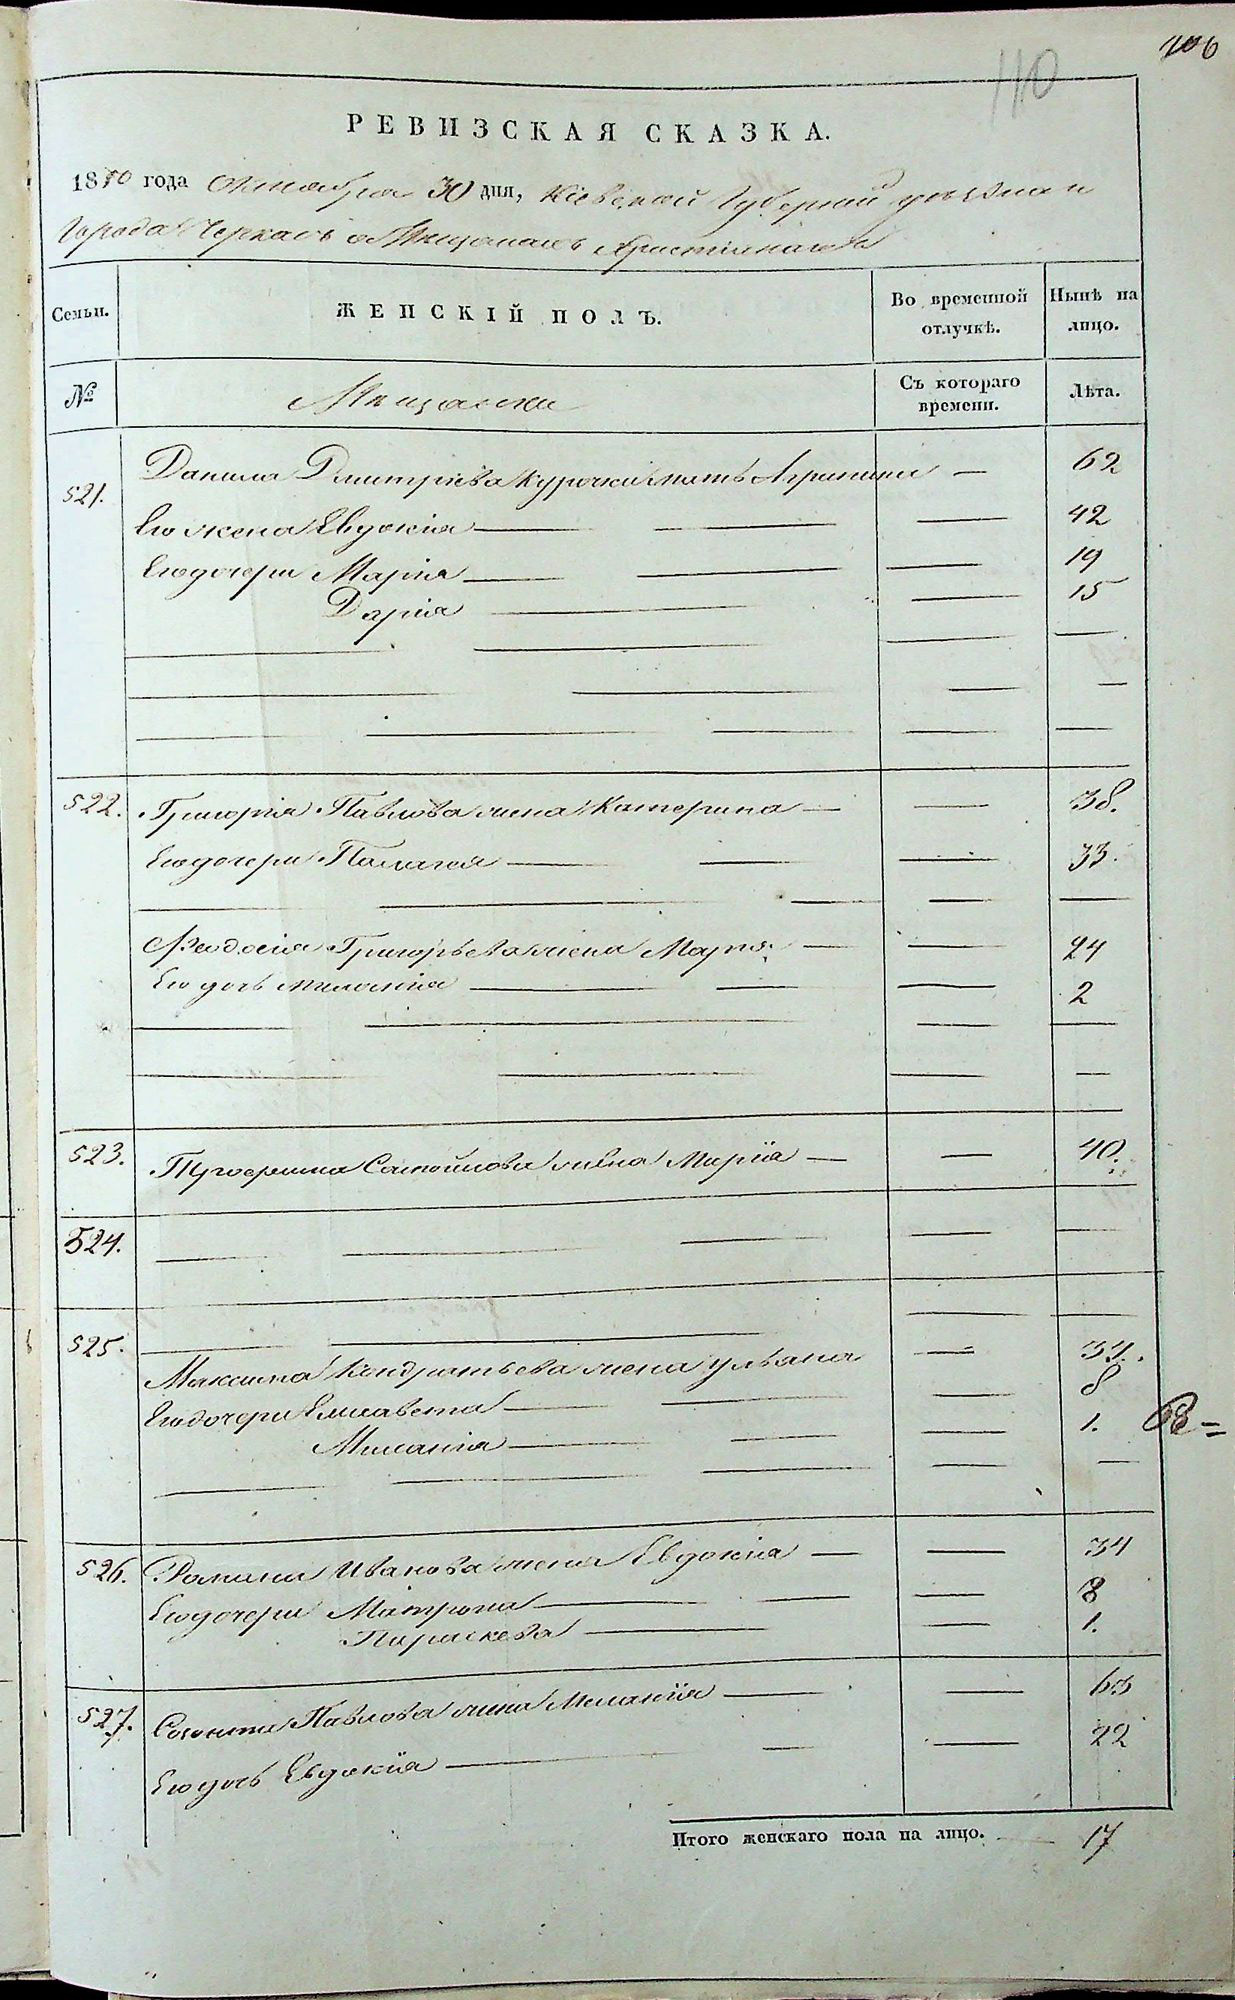 106
110
РЕВИЗСКАЯ СКАЗКА.
1850 года Октября 30 дня, Кіевской Губерніи уезднаго
Города Черкасъ о Мещанахъ Христіянахъ
Семьи.
ЖЕНСКІЙ ПОЛЪ.
Во временной отлучкѣ.
Нынѣ на лицо.
№
Мещанки
Съ котораго времени.
Лѣта.
521. Данила Дмитріева Курочки мать Агрипина — 62
Его жена Евдокія — 42
Его дочери Марія — 19
Дарія — 15
522. Григорія Павлова жена Катерина — 38.
Его дочери Пелагея — 33.
Феодосія Григорьева жена Марія — 24
Его дочь Меланія — 2
523. Самойлова жена Марія — 40.
524.
525.
Максима Кондратьева жена Ульяна — 34.
Его дочери Елисавета — 8
Меланія — 1.
526. Романа Иванова жена Евдокія — 34
Его дочери Матрона — 8
Параскева — 1.
527. Павлова жена Меланія — 63
Его дочь Евдокія — 22
Итого женскаго пола на лицо. — 17